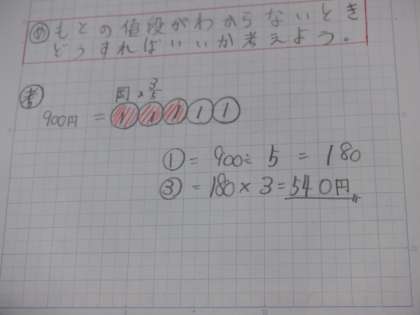 め もとの値段がわからないとき
どうすればいいか考えよう。
考
900円 = ①①①①①
① = 900÷5 = 180
③ = 180×3=540円